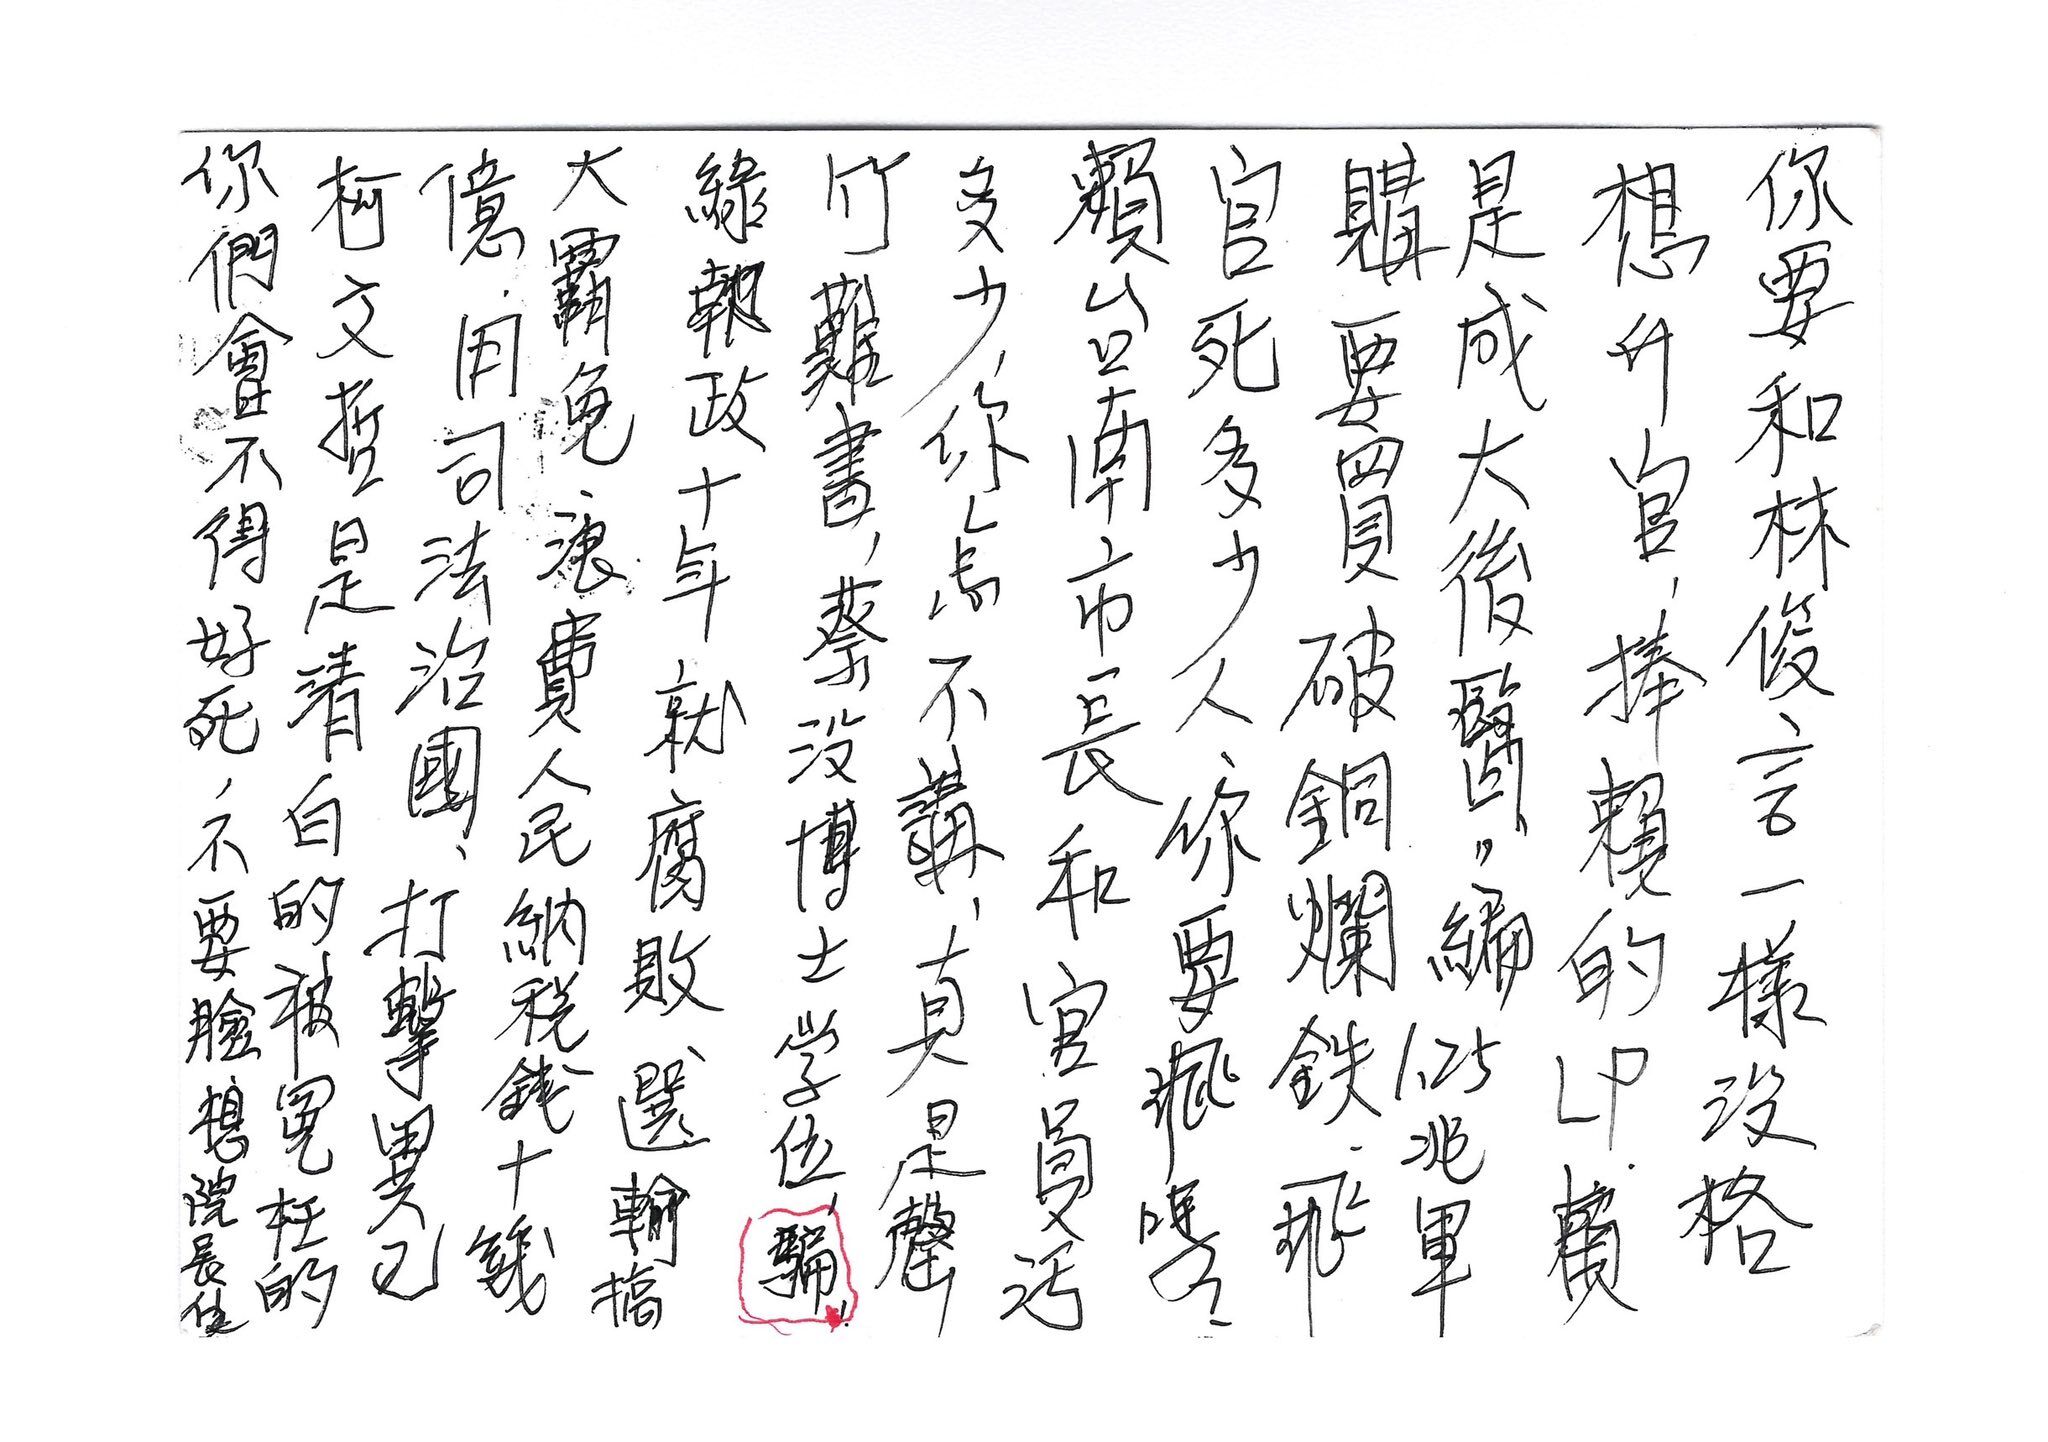 你要和林俊言一樣没格
想升官,捧賴的LP.賴
是成大後醫,,編1.25兆軍
購要買破銅爛鉄.飛
官死多少人你要飛嗎?.
賴台南市長和官員污
多少,你怎不講,真是罄
竹難書,蔡没博士学位,騙!
綠執政十年就腐敗選輸搞
大霸免.浪費人民納税錢十幾
億.用司法治國.打擊異己
柯文哲是清白的被冤枉的
你們會不得好死,不要臉想院長位